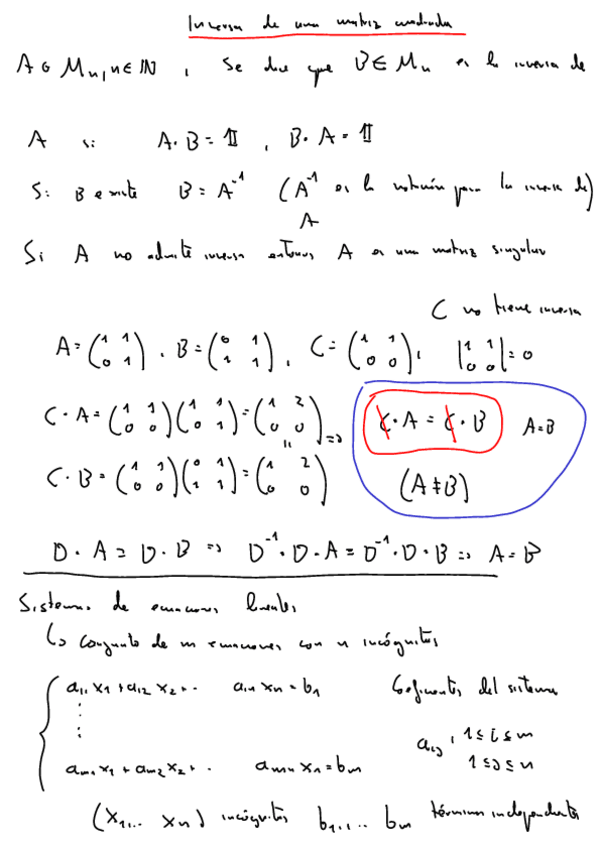 Inversa de una matriz cuadrada
A ∈ Mn, n ∈ ℕ, Se dice que B ∈ Mn es la inversa de
A si A·B = 𝟙, B·A = 𝟙
Si B existe B = A⁻¹ (A⁻¹ es la notación para la inversa de)
A
Si A no admite inversa entonces A es una matriz singular
C no tiene inversa
A = (1 1; 0 1), B = (0 1; 1 1), C = (1 1; 0 0), |1 1; 0 0| = 0
C·A = (1 1; 0 0)(1 1; 0 1) = (1 2; 0 0) => C·A = C·B A=B
"
C·B = (1 1; 0 0)(0 1; 1 1) = (1 2; 0 0) (A≠B)
D·A = D·B => D⁻¹·D·A = D⁻¹·D·B => A = B
Sistemas de ecuaciones lineales
↳ Conjunto de m ecuaciones con n incógnitas
a11 x1 + a12 x2 + .. a1n xn = b1 Coeficientes del sistema
⋮ aij, 1 ≤ i ≤ m
am1 x1 + am2 x2 + .. amn xn = bm 1 ≤ j ≤ n
(x1,.. xn) incógnitas b1,.. bm términos independientes